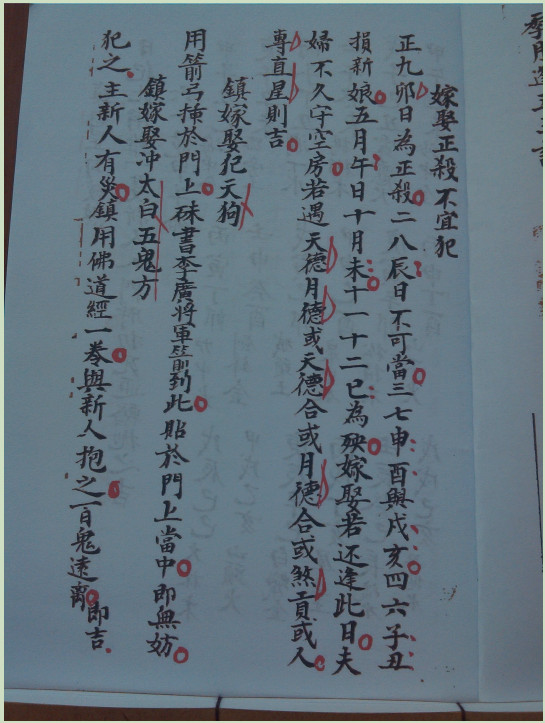 嫁娶正殺不宜犯
正九卯日為正殺二八辰日不可當三七申酉與戌亥四六子丑
損新娘五月午日十月未十一十二巳為殃嫁娶若还逢此日夫
婦不久守空房若遇天德月德或天德合或月德合或煞貢或人
專直星則吉
鎮嫁娶犯天狗
用箭弓掛於門上硃書李廣將軍箭到此貼於門上當中即無妨
鎮嫁娶冲太白五鬼方
犯之主新人有災鎮用佛道經一巻與新人抱之百鬼遠離即吉